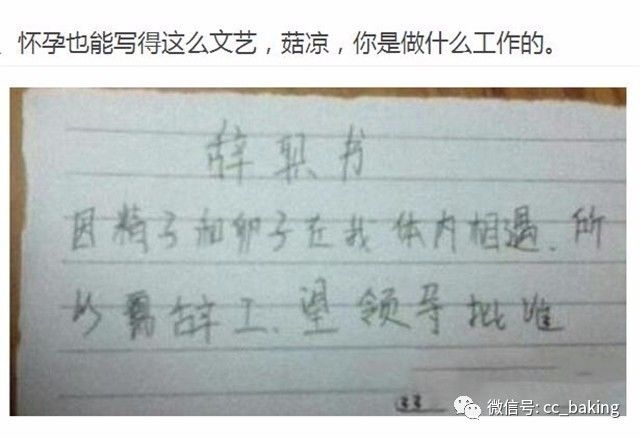 、怀孕也能写得这么文艺，菇凉，你是做什么工作的。
辞职书
因精子和卵子在我体内相遇、所
以需辞工、望领导批准
33
微信号: cc_baking